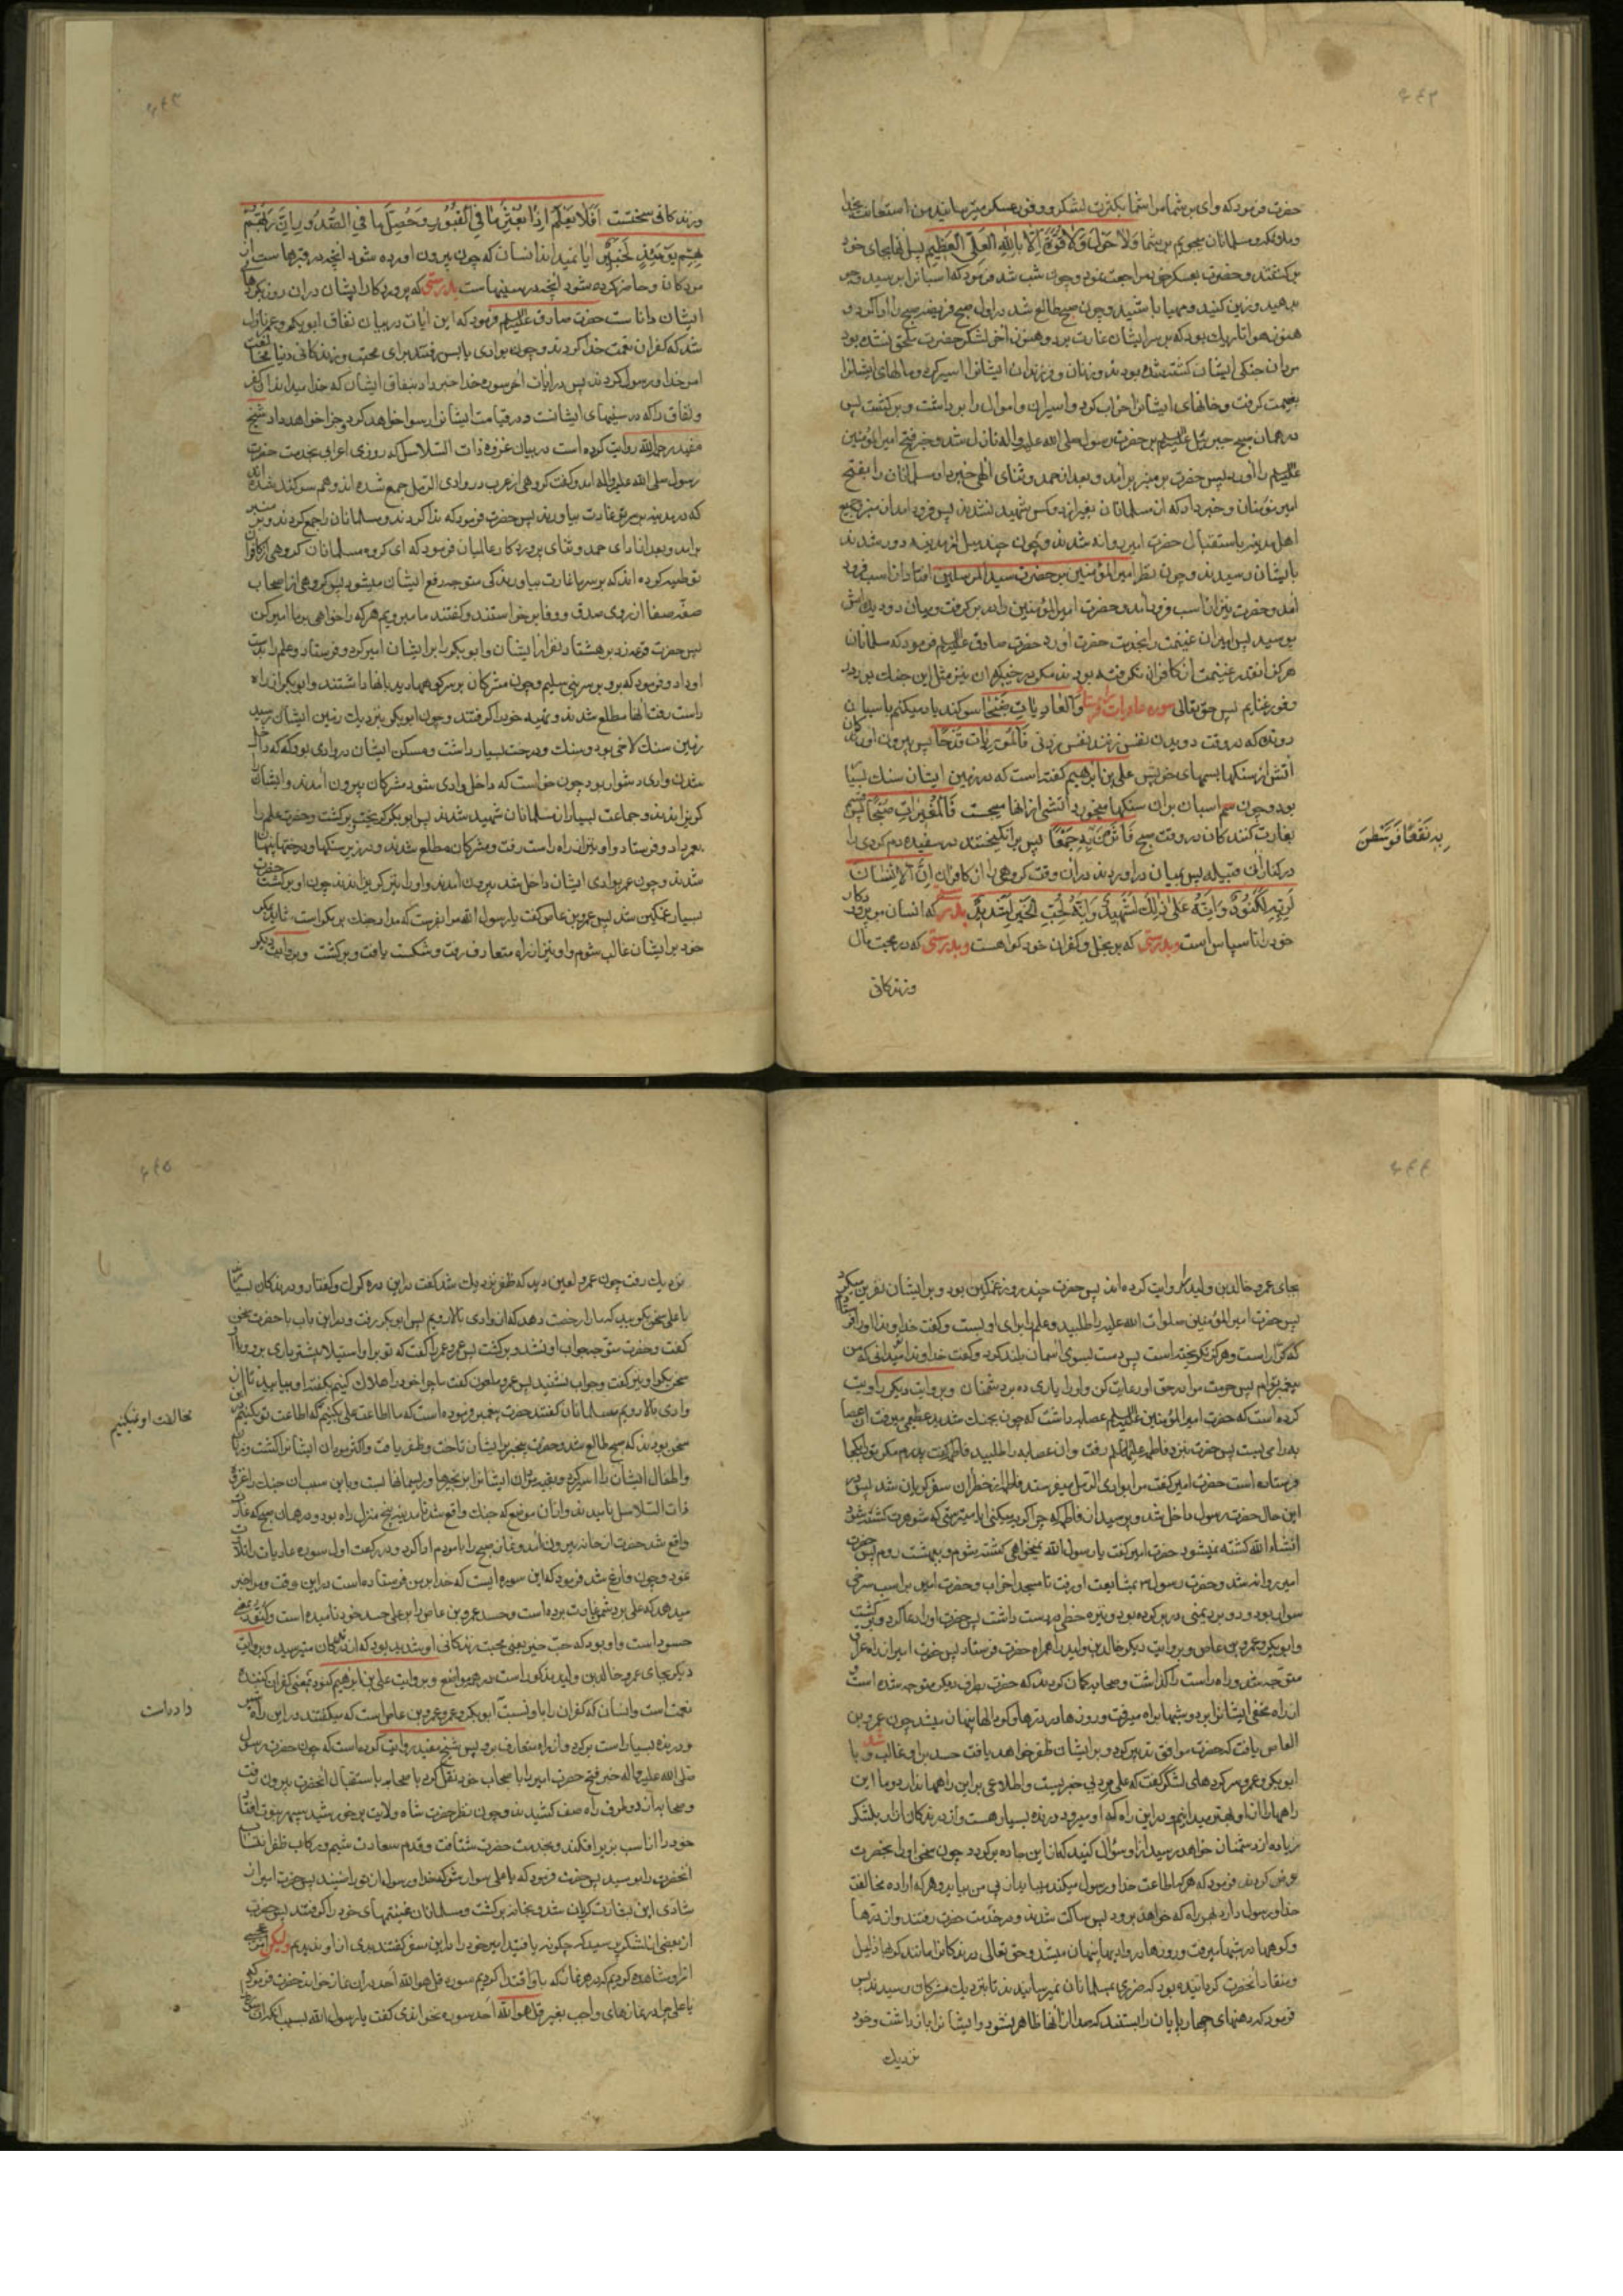 حضرت فرمود که وای بر شما مرا شما بکثرت لشکر و وفور عسکر میترسانید من استعانت بخدا
و ملائکه و مسلمانان میجویم بر شما وَلا حَولَ وَلا قُوَّةَ اِلّا بِاللهِ العَلِیِّ العَظیمِ پس آنها بجای خود
برگشتند و حضرت بعسکر خود مراجعت نمود و چون شب شد فرمود که اسبان را برسید و جو
بدهید و زین کنید و مهیا باشید و چون صبح طالع شد در اول صبح فریضه صبح را ادا کرد و
هنوز هوا تاریک بود که بر سر ایشان غارت برد و هنوز آخر لشکر حضرت ملحق نشده بود
مردان جنگی ایشان کشته شده بودند و زنان و فرزندان ایشانرا اسیر کرد و مالهای ایشانرا
بغنیمت گرفت و خانهای ایشانرا خراب کرد و اسیران و اموال را برداشت و برگشت پس
در همان صبح جبرئیل علیه السلم بر حضرت رسول صلی الله علیه واله نازل شد و خبر فتح امیرالمؤمنین
علیه السلم را آورد پس حضرت بر منبر برآمد و بعد از حمد و ثنای الهی خبر داد مسلمانان را بفتح
امیر مؤمنان و خبر داد که از مسلمانان بغیر از دو کس شهید نشدند پس فرود آمد از منبر و جمیع
اهل مدینه باستقبال حضرت امیر روانه شدند و چون چند میل از مدینه دور شدند
بایشان رسیدند و چون نظر امیرالمؤمنین بر حضرت سیدالمرسلین افتاد از اسب فرود
آمد و حضرت نیز از اسب فرود آمد و حضرت امیرالمؤمنین را در بر گرفت و میان دو دیده‌اش
بوسید پس امیر آن غنیمت را بخدمت حضرت آورد حضرت صادق علیه السلم فرمود که مسلمانان
هرگز آنقدر غنیمت از کافران نگرفته بودند مگر در خیبر که آن نیز مثل این جنگ بود در
وفور غنایم پس حق تعالی سوره عادیات فرستاد وَالعادِیاتِ ضَبحًا سوکند یاد میکنم باسبان
دونده که در وقت دویدن نفس زنند نفس زدنی فَالمُورِیاتِ قَدحًا پس بیرون آورندکان
آتش از سنکها بسمهای خویش علی بن ابراهیم گفته است که در زمین ایشان سنک بسیار
بود و چون سم اسبان بران سنکها میخورد آتشی از انها میجست فَالمُغیراتِ صُبحًا پس قسم
بغارت کنندکان در وقت صبح فَاَثَرنَ بِهِ جَمعًا پس برانکیختند در سفیده دم کردی را
بِهِ نَقعًا فَوَسَطنَ
در کنار آن قبیله پس بمیان درآوردند در آن وقت کروهی را از کافران اِنَّ الاِنسانَ
لِرَبِّهِ لَکَنُودٌ وَاِنَّهُ عَلی ذلِکَ لَشَهیدٌ وَاِنَّهُ لِحُبِّ الخَیرِ لَشَدیدٌ بدرستی که انسان مر پروردکار
خود را ناسپاس است و بدرستی که بر بخل و کفران خود کواهست و بدرستی که در محبت مال
وزندکانی
وزندکانی سختست اَفَلا یَعلَمُ اِذا بُعثِرَ ما فِی القُبُورِ وَحُصِّلَ ما فِی الصُّدُورِ اِنَّ رَبَّهُم
بِهِم یَومَئِذٍ لَخَبیرٌ ایا نمیداند انسان که چون بیرون اورده شود انچه در قبرها است از
مردکان و حاضر کرده شود آنچه در سینهاست بدرستی که پروردکار ایشان دران روز بکردهای
ایشان داناست حضرت صادق علیه السلم فرمود که این ایات در بیان نفاق ابوبکر و عمر نازل
شد که کفران نعمت خدا کردند و چون بوادی یابس رفتند برای محبت و زندکانی دنیا مخالفت
امر خدا و رسول کردند پس در ایات اخر سوره خدا خبر داد بنفاق ایشان که خدا میداند ان کفر
و نفاق را که در سینهای ایشانست و در قیامت ایشانرا رسوا خواهد کرد و جزا خواهد داد شیخ
مفید رحمه الله روایت کرده است در بیان غزوه ذات السلاسل که روزی اعرابی بخدمت حضرت
رسول صلی الله علیه واله امد و گفت کروهی از عرب در وادی الرمل جمع شده اند و هم سوکند شده اند
که در مدینه بر سر تو غارت بیاورند پس حضرت فرمود که ندا کردند و مسلمانان را جمع کردند و بر منبر
برامد و بعد از ادای حمد و ثنای پروردکار عالمیان فرمود که ای کروه مسلمانان کروهی از کافران
توطیه کرده اند که بر سر ما غارت بیاورند کی متوجه رفع ایشان میشود پس کروهی از اصحاب
صفه صفا از روی صدق و وفا برخواستند و گفتند ما میرویم هر که را خواهی بر ما امیر کن
پس حضرت قرعه زد بر هشتاد نفر از ایشان و ابوبکر را بر ایشان امیر کرد و فرستاد و علم را بدست
او داد و فرمود که برو بر سر بنی سلیم و چون مشرکان بر سر کوهها دید بانها داشتند و ابوبکر از راه
راست رفت آنها مطلع شدند و تهیه خود را کرفتند و چون ابوبکر بنزدیک زمین ایشان رسید
زمین سنک لاخی بود و سنک و درخت بسیار داشت و مسکن ایشان در وادی بود که داخل
شدن وادی دشوار بود چون خواست که داخل وادی شود مشرکان بیرون آمدند و ایشانرا
کریزانیدند و جماعت بسیار از مسلمانان شهید شدند پس ابوبکر کریخت و برکشت و حضرت علم را
بعمر داد و فرستاد و او نیز از راه راست رفت و مشرکان مطلع شدند و در زیر سنکها و درختها پنهان
شدند و چون عمر بوادی ایشان داخل شد بیرون آمدند و او را نیز کریزانیدند چون او برکشت حضرت
بسیار غمکین شد پس عمرو بن عاص کفت یا رسول الله مرا بفرست که مدار جنک بر مکر است شاید بمکر
خود بر ایشان غالب شوم و او نیز از راه متعارف رفت و شکست یافت و برکشت و بروایت دیکر
بجای عمرو خالد بن ولید را روایت کرده اند پس حضرت چند روز غمکین بود و بر ایشان نفرین میکرد
پس حضرت امیرالمؤمنین صلوات الله علیه را طلبید و علم را برای او بست و کفت خداوندا او را فرستادم
که کرار است و هرکز نکریخته است پس دست بسوی اسمان بلند کرد و کفت خداوندا میدانی که من
پیغمبر توام پس حرمت مرا در حق او رعایت کن و او را یاری ده بر دشمنان و بروایت دیکر روایت
کرده است که حضرت امیرالمؤمنین علیه السلم عصابه داشت که چون بجنک شدید عظیمی میرفت آن عصابه
بر سر می بست پس حضرت بنزد فاطمه علیها السلم رفت و ان عصابه را طلبید فاطمه کفت پدرم مکر ترا بکجا
فرستاده است حضرت امیر کفت مرا بوادی الرمل میفرستد فاطمه از خطر ان سفر کریان شد پس در
این حال حضرت رسول داخل شد و پرسید از فاطمه که چرا کریه میکنی ایا میترسی که شوهرت کشته شود
انشاء الله کشته نمیشود حضرت امیر کفت یا رسول الله نمیخواهی کشته شوم و ببهشت روم پس حضرت
امیر روانه شد و حضرت رسول بمشایعت او رفت تا مسجد احزاب و حضرت امیر بر اسب سرخی
سوار بود و دو برد یمنی در بر کرده بود و نیزه خطی در دست داشت پس حضرت او را دعا کرد و برکشت
و ابوبکر و عمر و عمرو بن عاص و بروایت دیکر خالد بن ولید را همراه حضرت فرستاد پس حضرت امیر از راه عراق
متوجه شد و راه راست را گذاشت و صحابه کمان کردند که حضرت بطرف دیکر متوجه شده است و
از راه مخفی ایشانرا برد و شبها براه میرفت و روزها در درها و کودالها پنهان میشد چون عمرو بن
العاص یافت که حضرت موافق تدبیر کرد و بر ایشان ظفر خواهد یافت حسد بر او غالب شد و با
ابوبکر و عمر و سرکردهای لشکر کفت که علی مرد بی خبریست و اطلاعی بر این راهها ندارد و ما این
راهها را از او بهتر میدانیم و در این راه که او میرود درنده بسیار هست و از درندکان ازار بلشکر
زیاده از دشمنان خواهد رسید از او سؤال کنید که از این جاده برکردد چون سخن او را بحضرت
عرض کردند فرمود که هر که اطاعت خدا و رسول میکند میباید از پی من بیاید و هر که اراده مخالفت
خدا و رسول دارد بهر راه که خواهد برود پس ساکت شدند و در خدمت حضرت رفتند و از درها
و کوهها در شبها میرفت و روزها در وادیها پنهان میشد و حق تعالی درندکانرا مانند کربها ذلیل
و منقاد آنحضرت کردانیده بود که ضرری بمسلمانان نمیرسانیدند تا بنزدیک مشرکان رسیدند پس
فرمود که دهنهای چهارپایان را بستند که صدا از انها ظاهر نشود و ایشانرا باز داشت و خود
نزدیک
نزدیک رفت چون عمرو لعین دید که ظفر نزدیک شد کفت در این دره کرک و کفتار و درندکان بسیارند
با علی سخن بکویید که ما را رخصت دهد که از وادی بالا رویم پس ابوبکر رفت و در این باب با حضرت سخن
کفت و حضرت متوجه جواب او نشد و برکشت پس عمرو عمر را کفت که تو بر او استیلا بیشتر داری برو و با او
سخن بکو او نیز کفت و جواب نشنید پس عمرو ملعون کفت ما چرا خود را هلاک کنیم بکفته او بیایید تا از این
وادی بالا رویم مسلمانان کفتند حضرت پیغمبر فرموده است که ما اطاعت علی بکنیم که اطاعت تو بکنیم در این
مخالفت او نمیکنیم
سخن بودند که صبح طالع شد و حضرت بیخبر بر ایشان تاخت و ظفر یافت و اکثر مردان ایشانرا کشت و زنان
و اطفال ایشان را اسیر کرد و بقیه مردان ایشانرا بزنجیرها و ریسمانها بست و باین سبب ان جنک را غزوه
ذات السلاسل نامیدند و از ان موضع که جنک واقع شد تا مدینه پنج منزل راه بود و در همان صبح که غارت
واقع شد حضرت از خانه بیرون آمد و نماز صبح را با مردم ادا کرد و در رکعت اول سوره عادیات را تلاوت
نمود و چون فارغ شد فرمود که این سوره ایست که خدا بر من فرستاده است در این وقت و مرا خبر
میدهد که علی بر دشمن غارت برده است و حسد عمرو بن عاص را بر علی حسد خود نامیده است
حسود است و او بود که حب خیر یعنی محبت زندکانی او شدید بود که از درندکان میترسید و بروایت
دیکر بجای عمرو خالد بن ولید مذکور است در همه مواضع و بروایت علی بن ابراهیم کنود بمعنی کفران کننده
نعمت است و انسان که کفران را باو نسبت داده است ابوبکر و عمر و عمرو بن عاص است که میکفتند در این راه
داده است
درنده بسیار است برکرد و از راه متعارف برو پس شیخ مفید روایت کرده است که چون حضرت رسول
صلی الله علیه واله خبر فتح حضرت امیر را با صحاب خود نقل کرد با صحابه باستقبال آنحضرت بیرون رفت
و صحابه از دو طرف راه صف کشیدند و چون نظر حضرت شاه ولایت بر خورشید سپهر نبوت افتاد
خود را از اسب بزیر افکند و بخدمت حضرت شتافت و قدم سعادت شیم و رکاب ظفر انتساب
آنحضرت را بوسید پس حضرت فرمود که یا علی سوار شو که خدا و رسول از تو راضیند پس حضرت امیر از
شادی این بشارت کریان شد و بخانه برکشت و مسلمانان غنیمتهای خود را کرفتند پس حضرت
از بعضی از لشکر پرسید که چکونه یافتید امیر خود را در این سفر کفتند بدی از او ندیدیم ولیکن امر عجیبی
از او مشاهده کردیم که در هر نماز که باو اقتدا کردیم سوره قل هو الله احد در آن نماز خواند حضرت فرمود که
یا علی چرا در نمازهای واجب بغیر قل هو الله احد سوره نخواندی کفت یا رسول الله بسبب آنکه